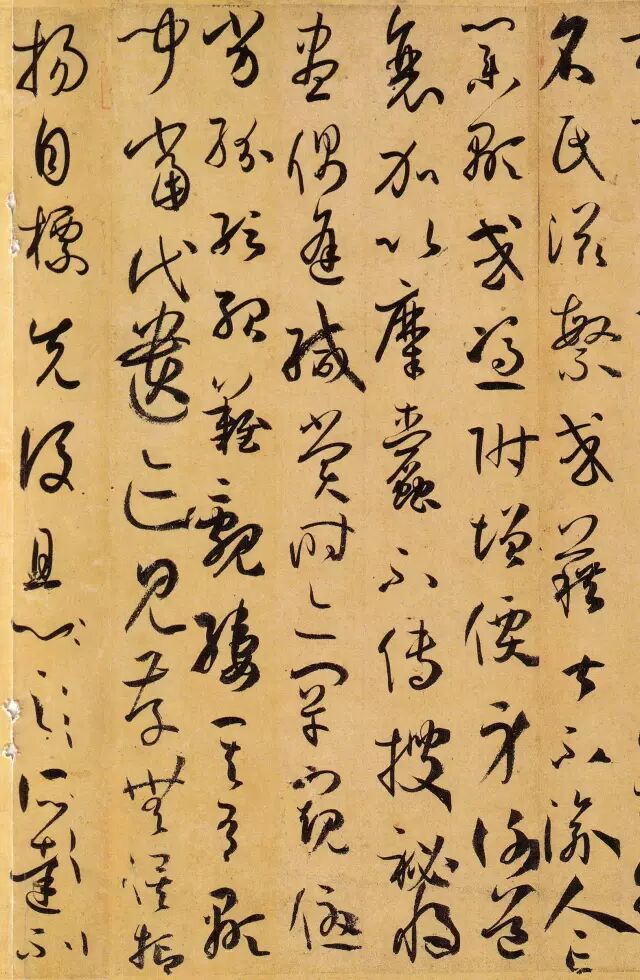 名氏滋繁或藉甚不渝人亡
業顯或憑附增價身謝道
衰加以糜蠹不傳搜秘將
盡偶逢緘賞時亦罕窺優
劣紛紜殆難覼縷其有顯
聞當代遺迹見存無俟抑
揚自標先後且